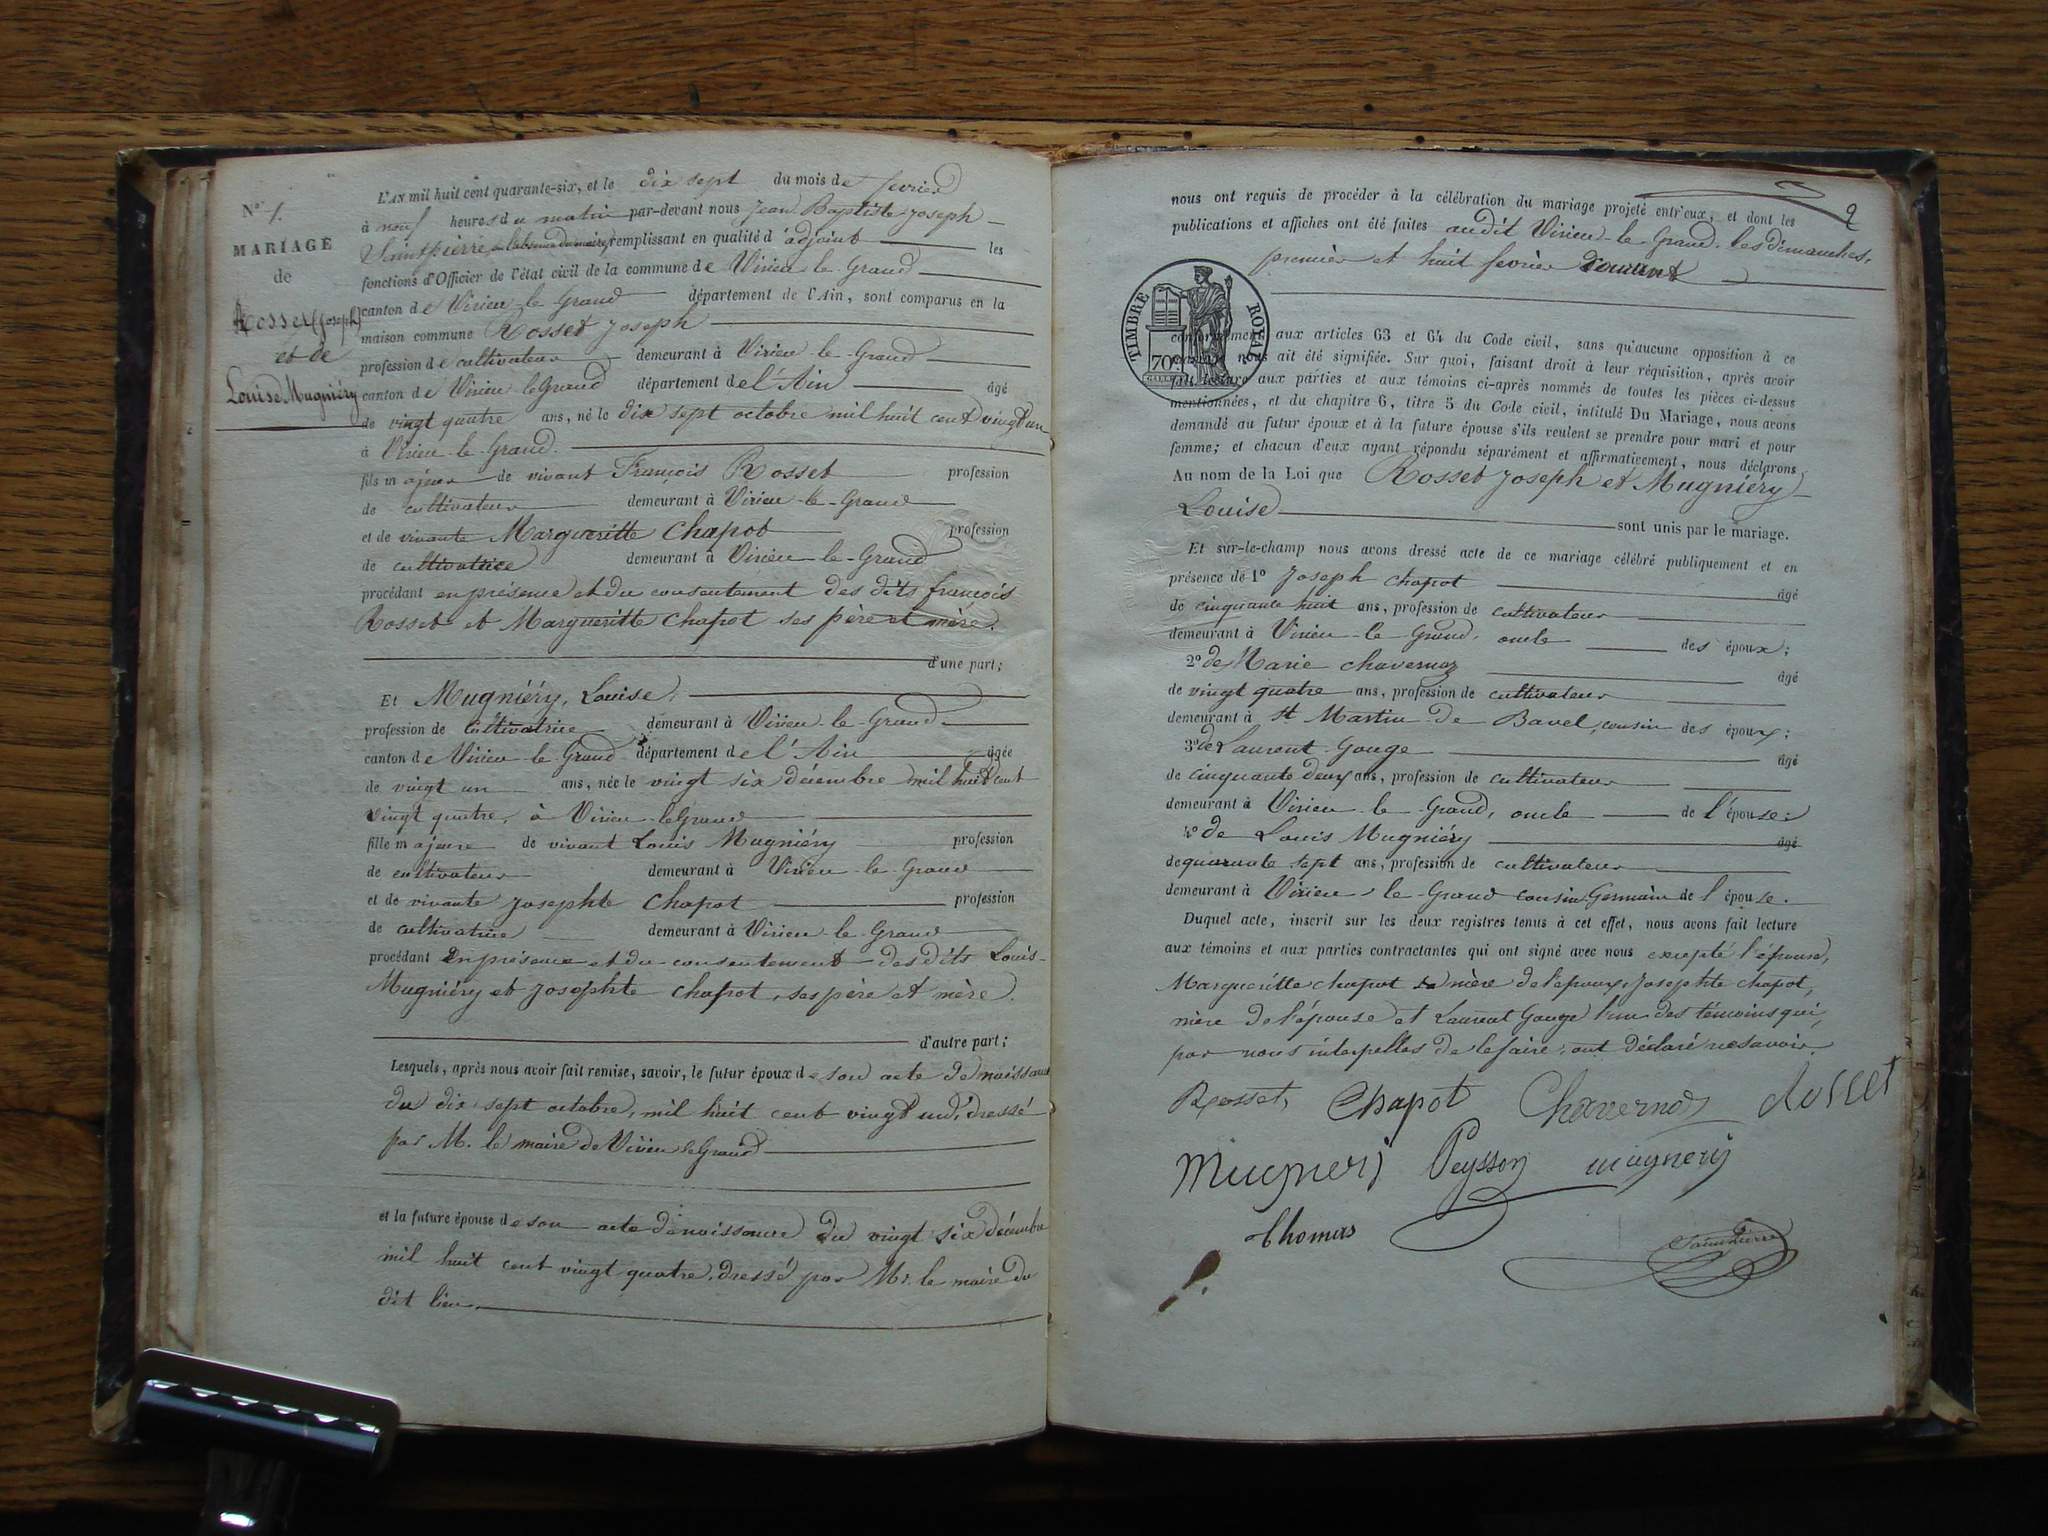 N° 1.
MARIAGE
de
Rosset (Joseph)
et de
Louise Mugniéry
L'AN mil huit cent quarante-six, et le dix sept du mois de fevrier
à neuf heures du matin par-devant nous Jean Baptiste Joseph
Saintpierre, remplissant en qualité d'adjoint les
fonctions d'Officier de l'état civil de la commune de Virieu le Grand
canton de Virieu le Grand département de l'Ain, sont comparus en la
maison commune Rosset Joseph
profession de cultivateur demeurant à Virieu le Grand
canton de Virieu le Grand département de l'Ain âgé
de vingt quatre ans, né le dix sept octobre mil huit cent vingt un
à Virieu le Grand.
fils majeur de vivant François Rosset profession
de cultivateur demeurant à Virieu le Grand
et de vivante Margueritte Chapot profession
de cultivatrice demeurant à Virieu le Grand
procédant en présence et du consentement des dits françois
Rosset et Margueritte Chapot ses père et mère.
d'une part;
Et Mugniéry, Louise,
profession de cultivatrice demeurant à Virieu le Grand
canton de Virieu le Grand département de l'Ain âgée
de vingt un ans, née le vingt six décembre mil huit cent
vingt quatre, à Virieu le Grand
fille majeure de vivant Louis Mugniéry profession
de cultivateur demeurant à Virieu le Grand
et de vivante Josephte Chapot profession
de cultivatrice demeurant à Virieu le Grand
procédant En présence et du consentement des dits Louis
Mugniéry et Josephte Chapot, ses père et mère.
d'autre part;
Lesquels, après nous avoir fait remise, savoir, le futur époux de son acte de naissance
du dix sept octobre, mil huit cent vingt un, dressé
par M. le maire de Virieu le Grand
et la future épouse de son acte de naissance du vingt six décembre
mil huit cent vingt quatre, dressé par Mr. le maire du
dit lieu.
2
nous ont requis de procéder à la célébration du mariage projeté entr'eux, et dont les
publications et affiches ont été faites audit Virieu le Grand, les dimanches,
premier et huit fevrier courant
TIMBRE ROYAL
70c
conformément aux articles 63 et 64 du Code civil, sans qu'aucune opposition à ce
mariage nous ait été signifiée. Sur quoi, faisant droit à leur réquisition, après avoir
fait lecture aux parties et aux témoins ci-après nommés de toutes les pièces ci-dessus
mentionnées, et du chapitre 6, titre 5 du Code civil, intitulé Du Mariage, nous avons
demandé au futur époux et à la future épouse s'ils veulent se prendre pour mari et pour
femme; et chacun d'eux ayant répondu séparément et affirmativement, nous déclarons
Au nom de la Loi que Rosset Joseph et Mugniéry
Louise sont unis par le mariage.
Et sur-le-champ nous avons dressé acte de ce mariage célébré publiquement et en
présence de 1° Joseph Chapot âgé
de cinquante huit ans, profession de cultivateur
demeurant à Virieu le Grand, oncle des époux;
2° de Marie Chavernoz âgé
de vingt quatre ans, profession de cultivateur
demeurant à St Martin de Bavel, cousin des époux;
3° de Laurent Gouge âgé
de cinquante deux ans, profession de cultivateur
demeurant à Virieu le Grand, oncle de l'épouse;
4° de Louis Mugniéry âgé
de quarante sept ans, profession de cultivateur
demeurant à Virieu le Grand cousin Germain de l'épouse.
Duquel acte, inscrit sur les deux registres tenus à cet effet, nous avons fait lecture
aux témoins et aux parties contractantes qui ont signé avec nous excepté l'épouse,
Margueritte Chapot mère de l'époux, Josephte Chapot,
mère de l'épouse et Laurent Gouge l'un des témoins qui,
par nous interpellés de le faire, ont déclaré ne savoir.
Rosset, Chapot Chavernoz
Mugnery Peysson mugnery
Thomas
Saintpierre